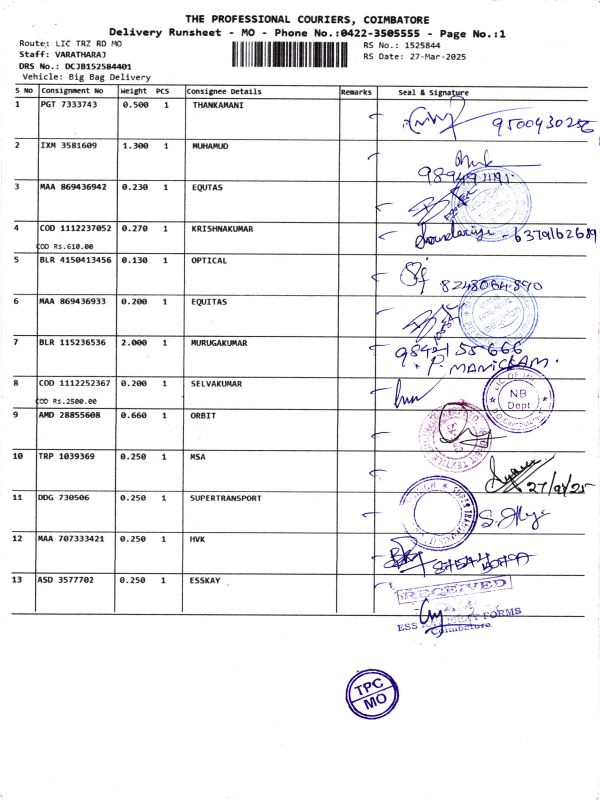 THE PROFESSIONAL COURIERS, COIMBATORE
Delivery Runsheet - MO - Phone No.:0422-3505555 - Page No.:1
Route: LIC TRZ RD MO
RS No.: 1525844
Staff: VARATHARAJ
RS Date: 27-Mar-2025
DRS No.: DCJB152584401
Vehicle: Big Bag Delivery
S No Consignment No Weight PCS Consignee Details Remarks Seal & Signature
1 PGT 7333743 0.500 1 THANKAMANI
9500430256
2 IXM 3581609 1.300 1 MUHAMUD
3 MAA 869436942 0.230 1 EQUTAS
4 COD 1112237052 0.270 1 KRISHNAKUMAR
6379162689
COD Rs.610.00
5 BLR 4150413456 0.130 1 OPTICAL
6 MAA 869436933 0.200 1 EQUITAS
7 BLR 115236536 2.000 1 MURUGAKUMAR
P. MANICKAM.
8 COD 1112252367 0.200 1 SELVAKUMAR
NB
Dept
COD Rs.2500.00
9 AMD 28855608 0.660 1 ORBIT
10 TRP 1039369 0.250 1 MSA
11 DDG 730506 0.250 1 SUPERTRANSPORT
12 MAA 707333421 0.250 1 HVK
13 ASD 3577702 0.250 1 ESSKAY
RECEIVED
ESS FORMS
Coimbatore
TPC
MO